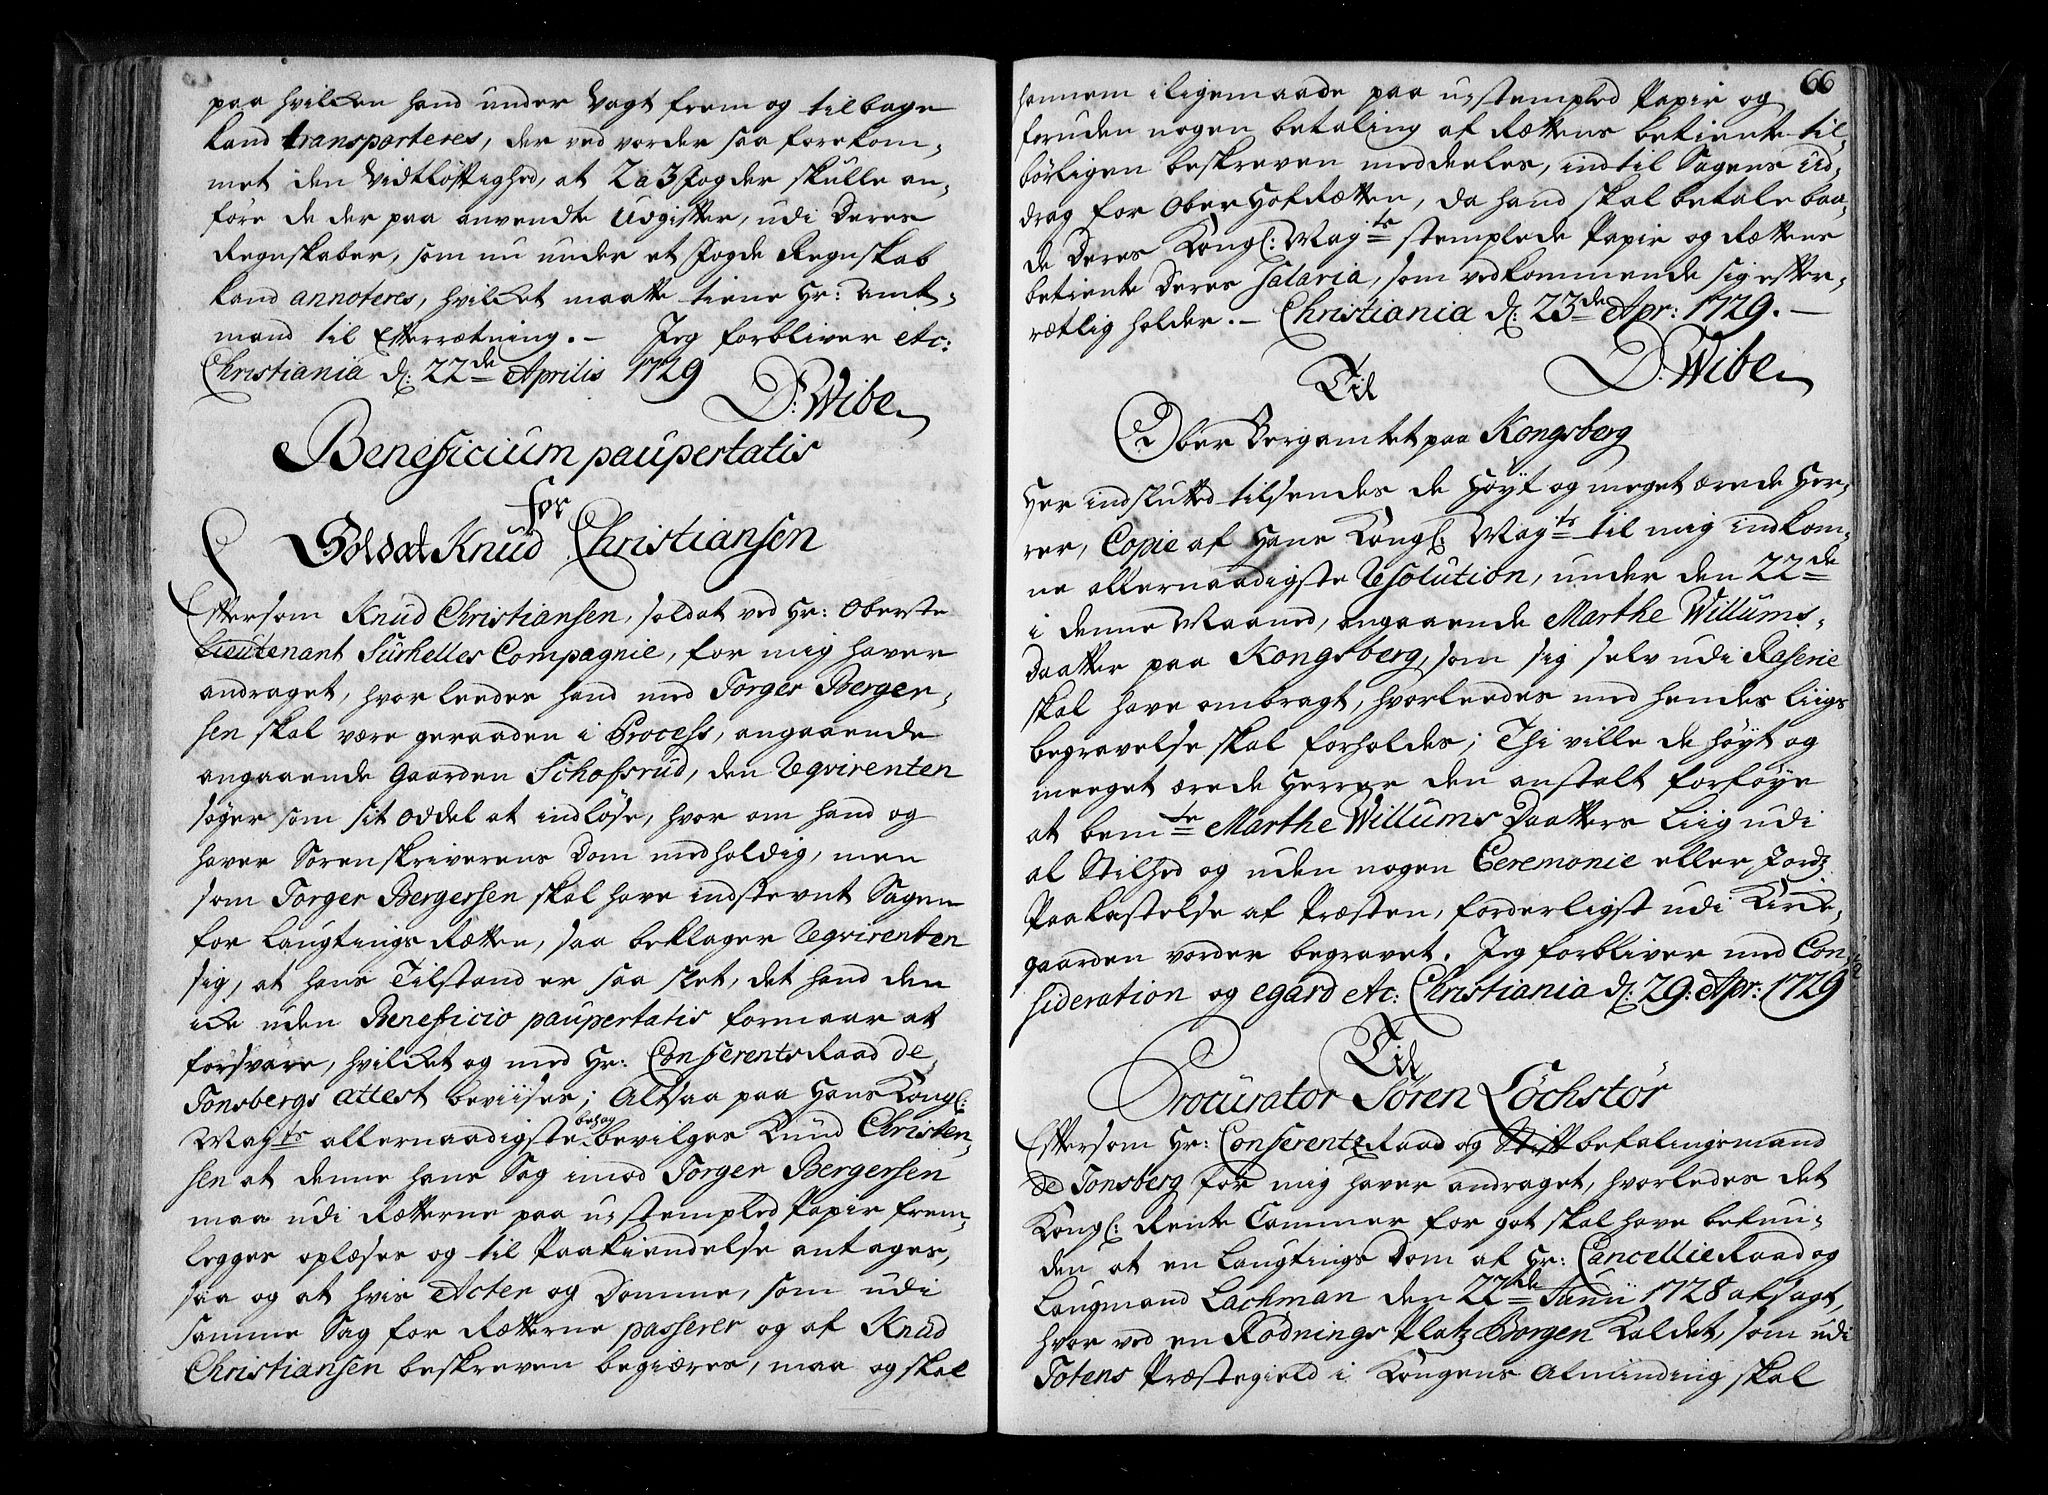 paa hvilken hand under Vagt frem og tilbage
kand transporteres, der ved vorder saa forekom¬
met den Vidtløftighed, at 2 a 3 Fogder skulle an¬
føre de der paa anvendte Udgifter, udi deres
Regnskaber, som nu under et Fogde Regnskab
kand annoteres, hvilket maatte tiene Hr: Amt¬
mand til Efterrætning. – Jeg forbliver etc:
Christiania d: 22de Aprilis 1729
D: Wibe
Beneficium paupertatis
for
Soldat Knud Christiansen
Eftersom Knud Christiansen, soldat ved Hr: Oberste
Lieutenant Surhelles Compagnie, for mig haver
andraget, hvorleedes hand med Torger Berger¬
sen skal være geraaden i Process, angaaende
angaaende Gaarden Schossrud, den Reqvirenten
søger som sit oddel at indløse, hvor om hand og
haver Sorenskriverens Dom medholdig, men
som Torger Bergersen skal have indstevnt Sagen
for Laugtings Rætten, saa beklager Reqvirenten
sig, at hans Tilstand er saa slet, det hand den
icke uden Beneficio paupertatis formaar at
forsvare, hvilket og med Hr: Conferents Raad de
Tonsbergs attest beviises; Altsaa paa Hans Kongl:
Mayts allernaadigste behag bevilges Knud Christen¬
sen at denne hans Sag imod Torger Bergersen
maa udi Rætterne paa u-stempled Papir frem¬
legges oplæses og til Paakiendelse antages,
saa og at hvis Acter og Domme, som udi
samme Sag for Rætterne passerer og af Knud
Christiansen beskreven begiæres, maa og skal
66
hannem iligemaade paa u-stempled Papir og
foruden nogen betaling af Rættens betiente til¬
børligen beskreven meddeeles, indtil Sagens Ud¬
drag for Ober Hof Rætten, da hand skal betale baa¬
de Deres Kongl: Mayts stemplede Papir og Rættens
betiente deres Salaria, som vedkommende sig efter¬
rætlig holder. – Christiania d: 23de Apr: 1729. –
D: Wibe
Til
Ober Bergamtet paa Kongsberg
Her indslutted tilsendes de Høyt og meget ærede Her¬
rer, Copie af Hans Kongl: Mayts til mig indkom¬
ne allernaadigste Resolution, under den 22de
i denne Maaned, angaaende Marthe Willums¬
daatter paa Kongsberg, som sig selv udi Raserie
skal have ombragt, hvorleedes med hendes Liigs
begravelse skal forholdes; Thi ville de høyt og
meeget ærede Herrer den anstalt forføye
at bemte Marthe Willums Daatters Liig udi
al Stilhed og uden nogen Ceremonie eller Jords
Paakastelse af Præsten, forderligst udi Kirke¬
gaarden vorder begravet. Jeg forbliver med Con¬
sideration og egard etc: Christiania d: 29: Apr: 1729
Til
Procurator Søren Løchstør
Eftersom Hr: Conferentz Raad og Stiftbefalingsmand
de Tonsberg for mig haver andraget, hvorledes det
Kongl: Rente Cammer for got skal have befun¬
den at en Laugtings Dom af Hr: Cancellie Raad og
Laugmand Lachman den 22de Junii 1728 afsagt,
hvor ved en Rødnings Platz Borgen kaldet, som udi
Totens Præstegield i Kongens Alminding skal